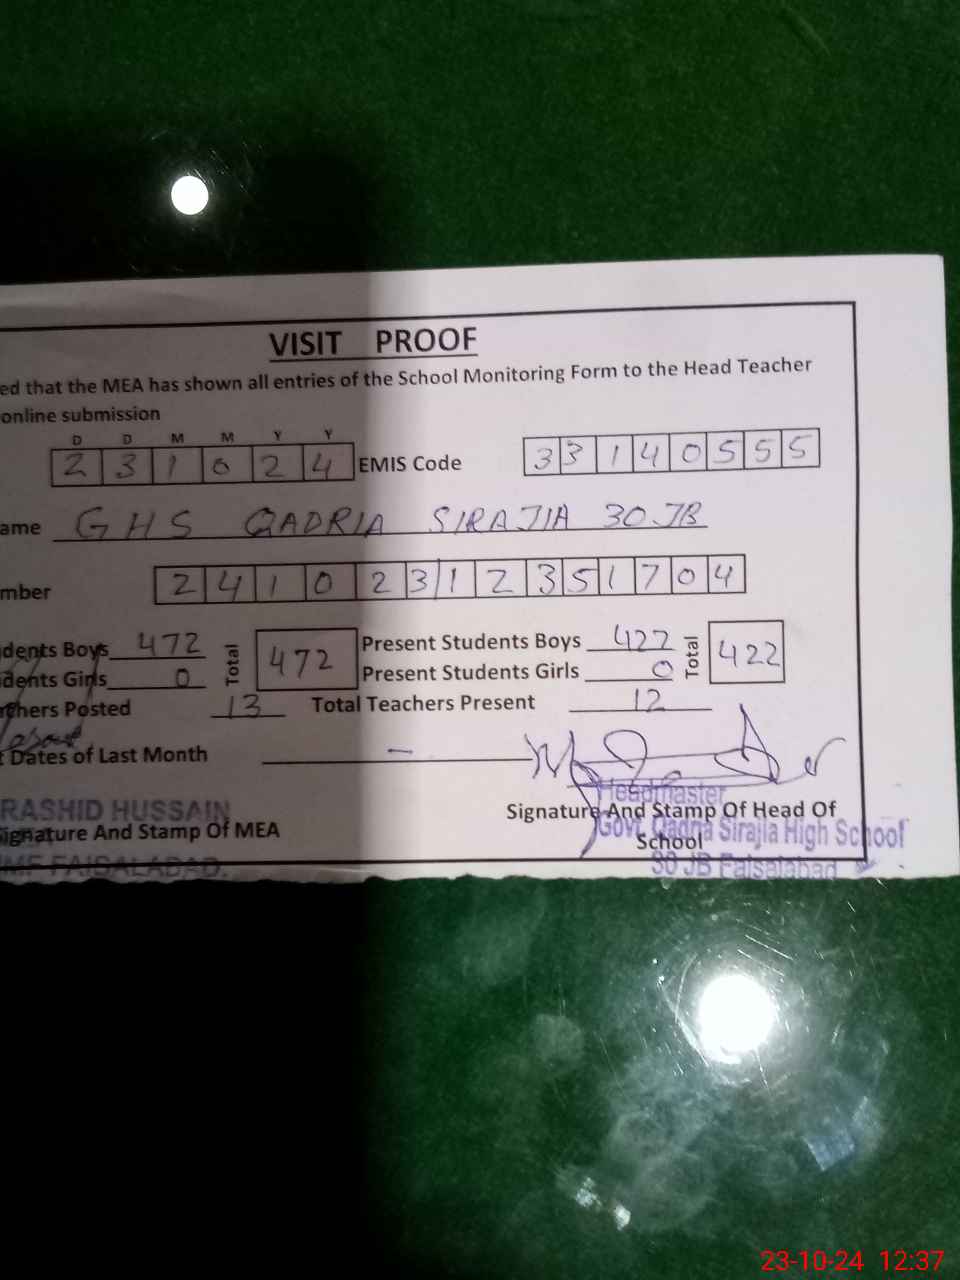 VISIT PROOF
ed that the MEA has shown all entries of the School Monitoring Form to the Head Teacher
online submission
D D M M Y Y
2 3 1 0 2 4 EMIS Code 3 3 1 4 0 5 5 5
ame GHS QADRIA SIRAJIA 30 JB
mber 2 4 1 0 2 3 1 2 3 5 1 7 0 4
dents Boys 472 Total 472 Present Students Boys 422 Total 422
dents Girls 0 Present Students Girls 0
chers Posted 13 Total Teachers Present 12
t Dates of Last Month -
RASHID HUSSAIN
ignature And Stamp Of MEA
FAISALABAD.
Headmaster
Signature And Stamp Of Head Of
Govt. Qadria Sirajia High School
School
30 JB Faisalabad
23-10-24 12:37